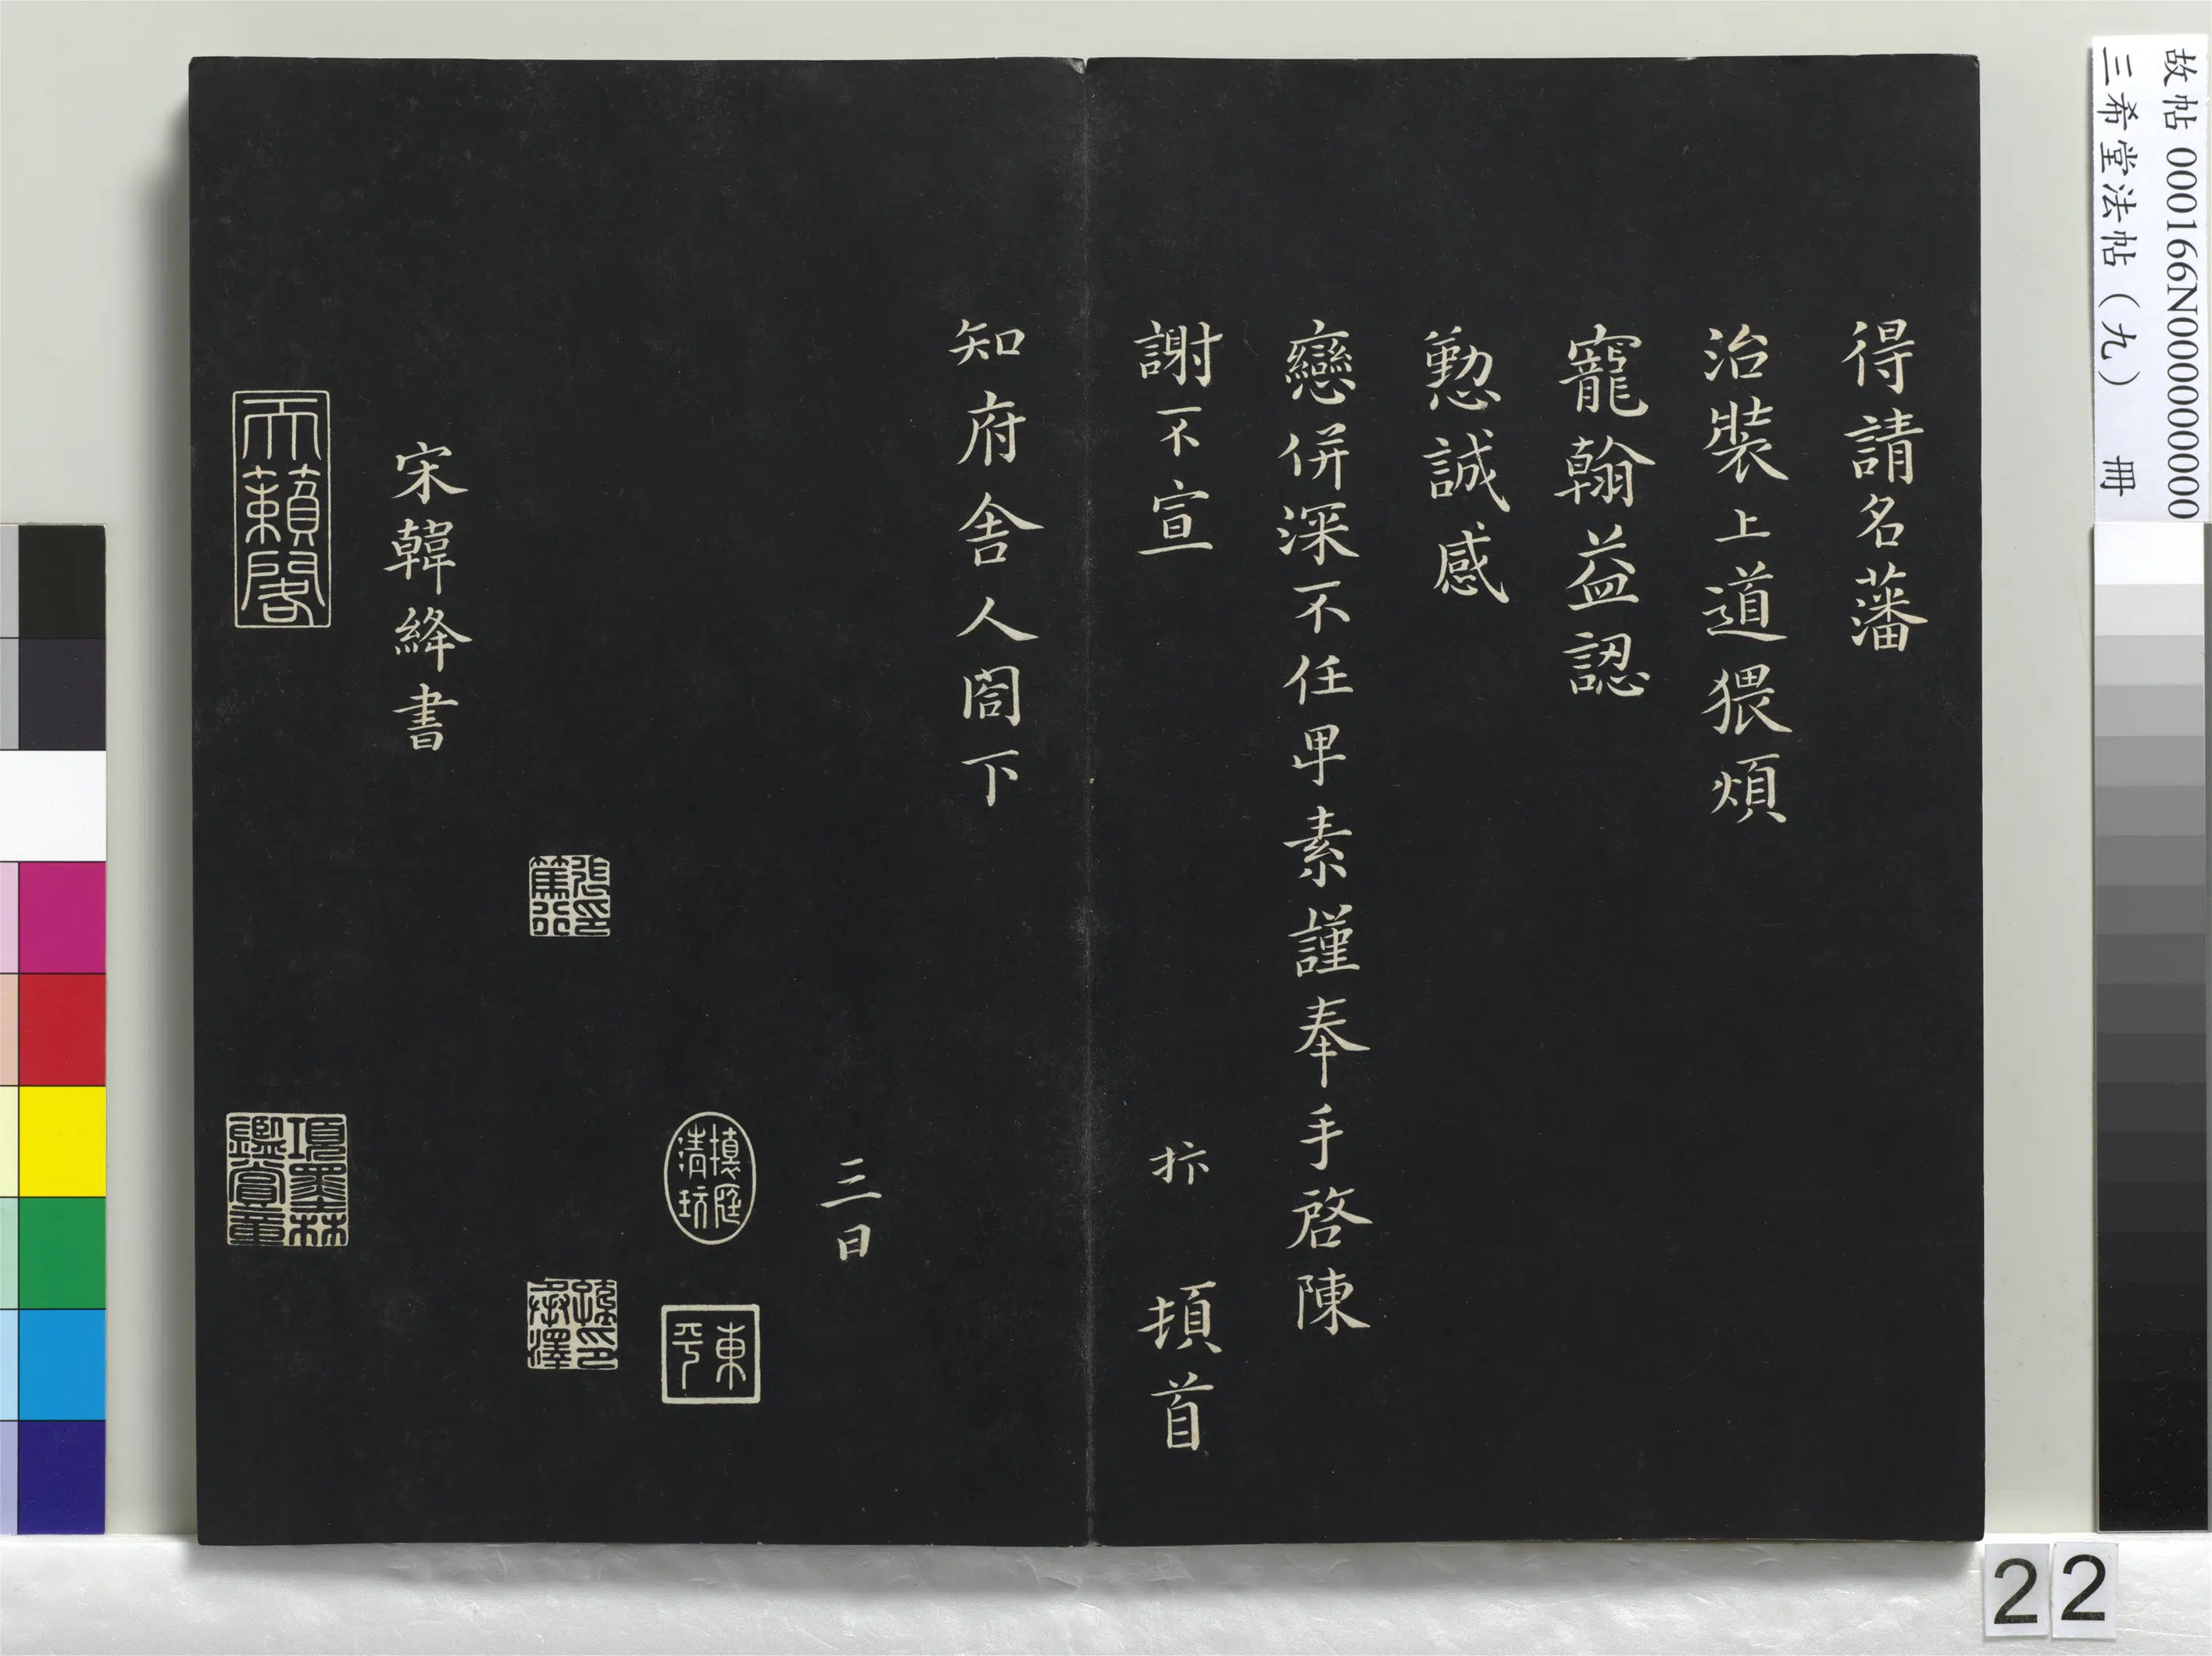 得請名藩
治裝上道猥煩
寵翰益認
懃誠感
戀併深不任卑素謹奉手啓陳
謝不宣 抃 頓首
知府舍人閤下
三日
東平
宋韓絳書
天籟閣
項墨林鑑賞章
故帖 000166N000000000
三希堂法帖（九） 冊
22